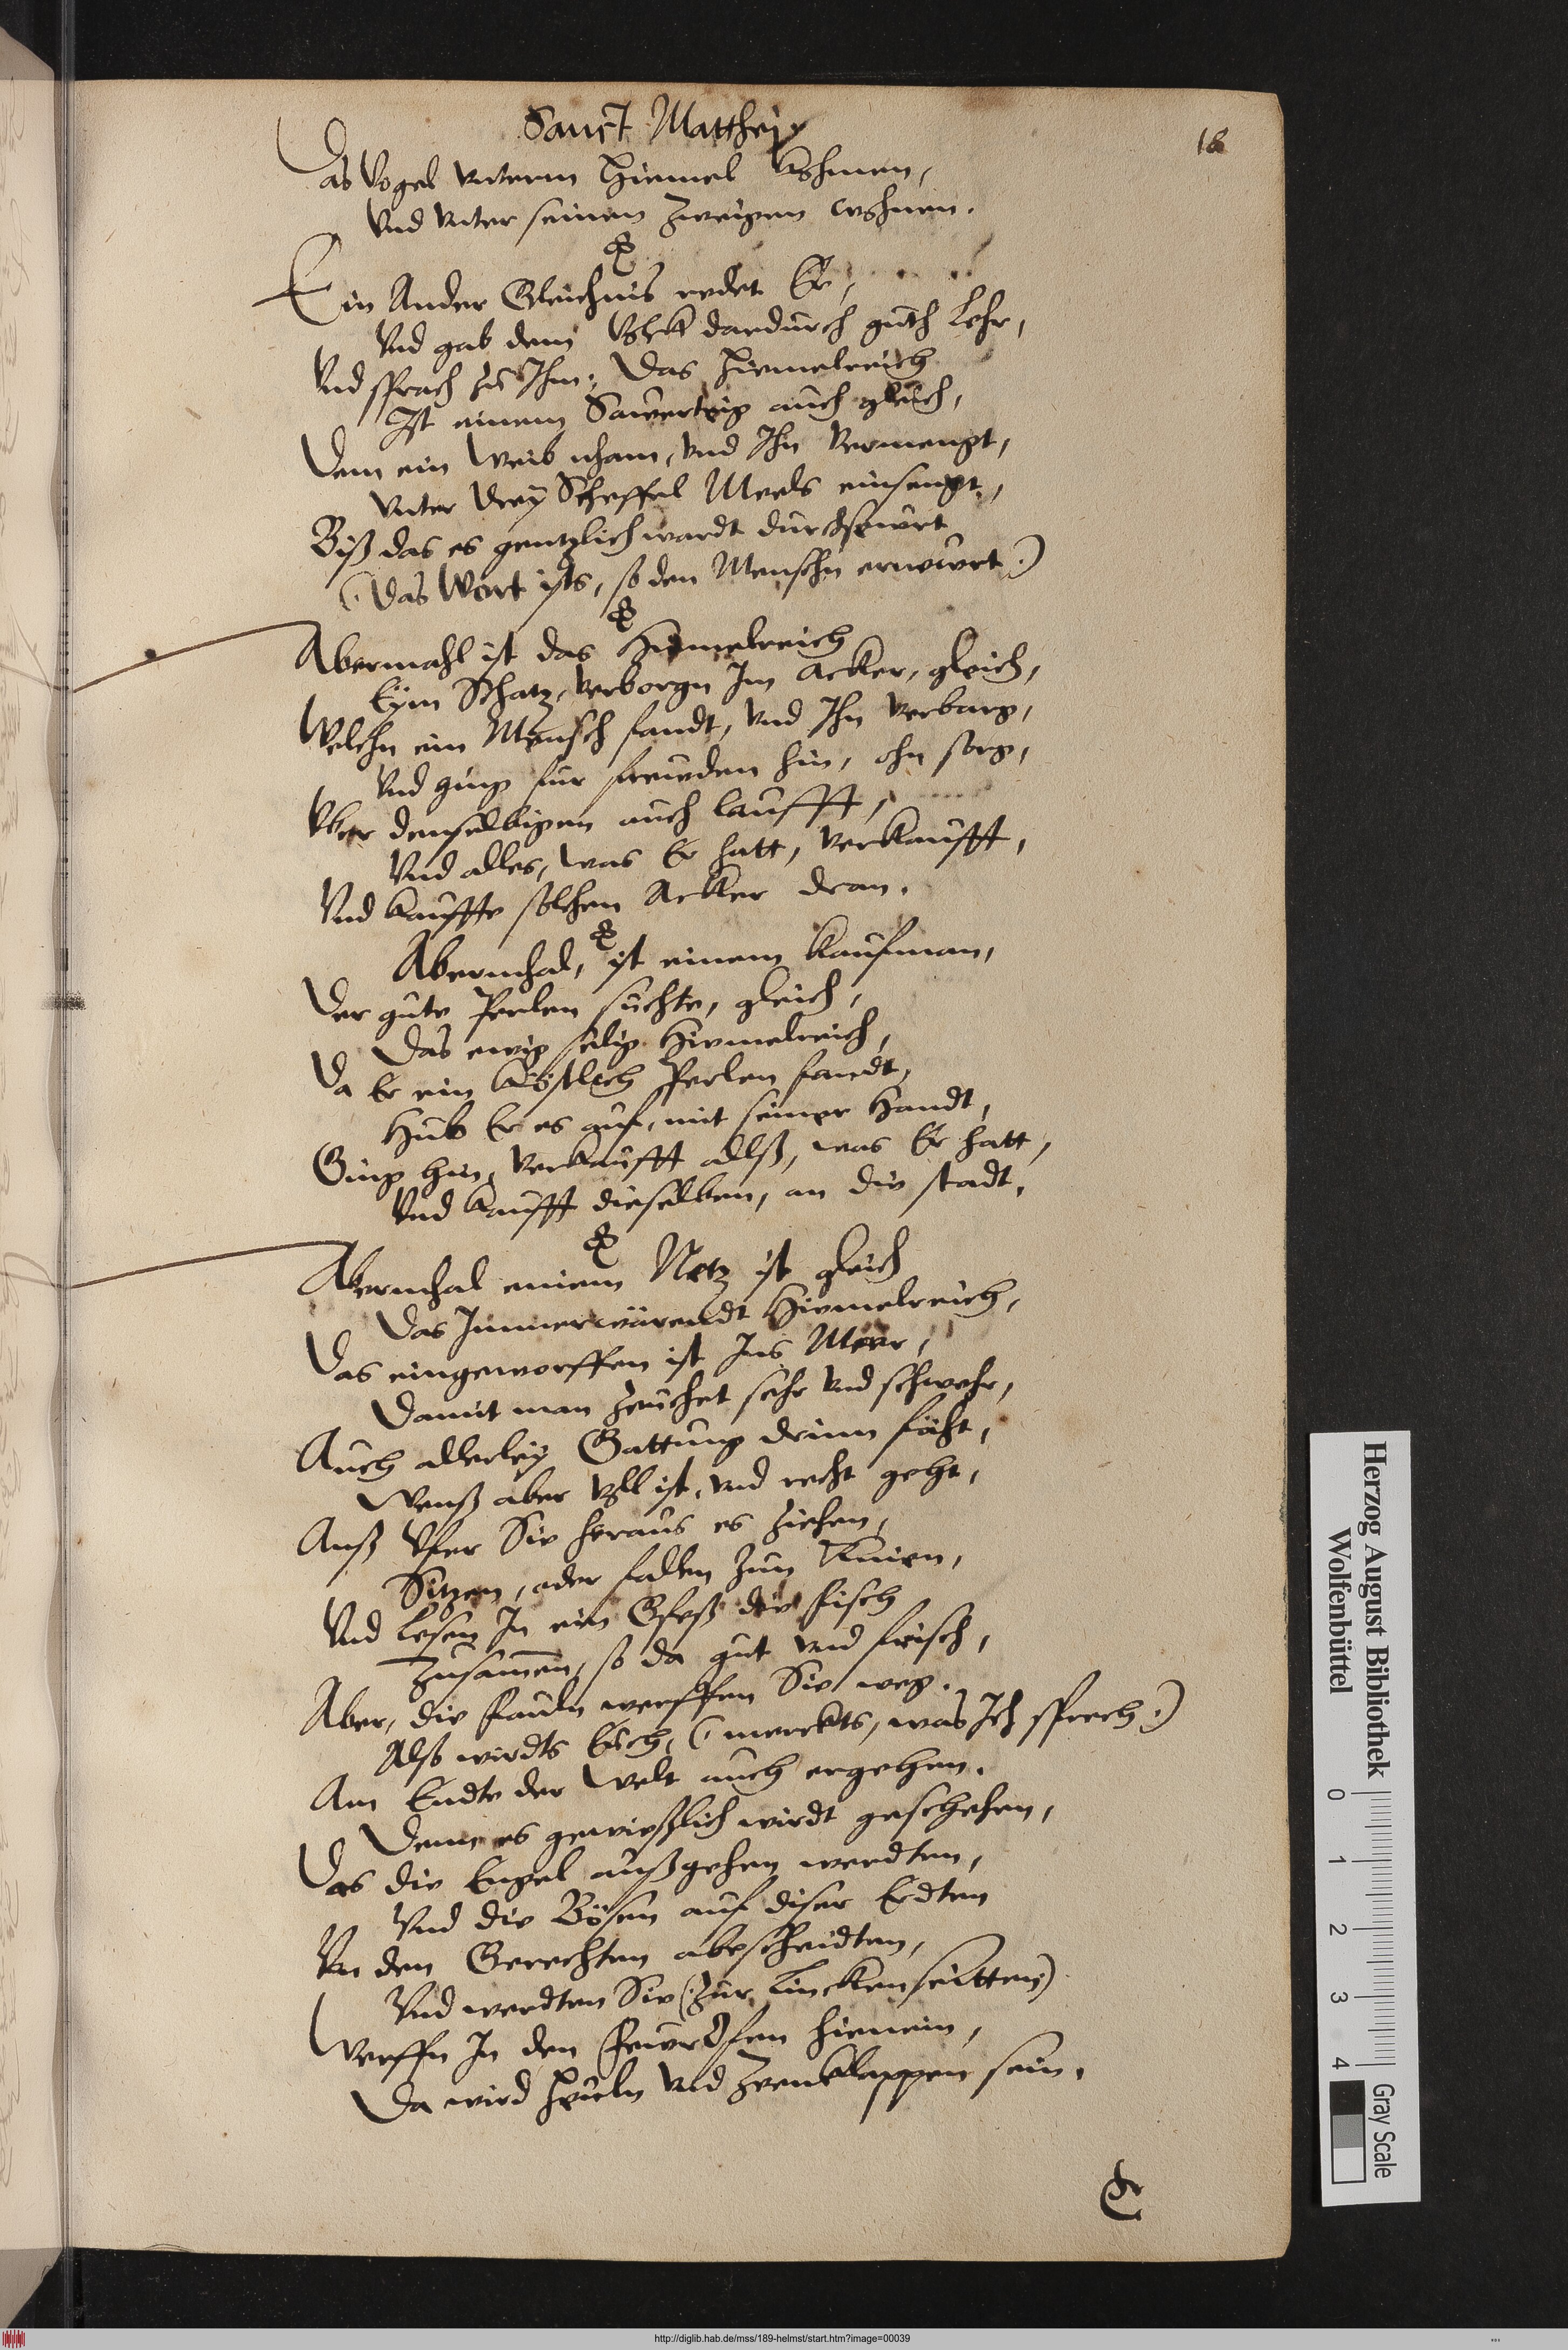 Sanct Matthej
18
Das Vogel vnterm Himmel kohmen,
Vnd vnter seinen Zweigen wohnen.
Ein Ander Gleichnis redet Er,
Vnd gab dem Volck dardurch guth Lehr,
Vnd sprach zu Ihn: Das Himmelreich
Ist einem Sawerteig auch gleich,
Dem ein Weib nham, vnd Ihn Vermengt,
Vnter drey Scheffel Meels einsengt,
Biß das es gentzlich wardt durchsewrt
(: Das Wort ists, so den Menschn ernewrt :)
Abermahl ist das Himmelreich
Eym Schatz, Verborgn Im Acker, gleich,
Welchn ein Mensch fandt, vnd Ihn verbarg,
Vnd ging für frewden hin, ohn sorg,
Vber denselbigen auch laufft,
Vnd alles, was Er hatt, verkaufft,
Vnd kauffte solchen Acker dran.
Abermhal, ist einem kaufman,
Der gute Perlen suchte, gleich,
Das ewig selig Himmelreich,
Da Er ein köstlich Perlen fandt,
Hub Er es auf, mit seiner Handt,
Ging hin, Verkaufft allß, was Er hatt,
Vnd kaufft dieselben, an die stadt.
Abermhal einem Netz ist gleich
Das Immerwärendt Himmelreich,
Das eingeworffen ist Ins Meer,
Damit man zeuchet sehr vnd schwehr,
Auch allerley Gattung drinn fäht,
Wenß aber voll ist, vnd recht geht,
Anß Vfer Sie heraus es ziehen,
Sitzen, oder fallen zun Knien,
Vnd lesen In ein Gfeß die fisch
Zusamen, so da gut vnd frisch,
Aber, die fauln werffen Sie weg.
Alß wirdts Euch, (: merckts, was Ich sprech :)
Am Endte der Welt auch ergehen.
Denn es gewießlich wirdt geschehen,
Das die Engel außgehen werdten,
Vnd die Bösen auf diser Erdten
Vn den Gerechten abescheidten,
Vnd werdten Sie (: zur Lincken seitten :)
Werffn In den Fewrofen hienein,
Da wird Heuln vnd Zeenklappen sein.
C
Herzog August Bibliothek
Wolfenbüttel
0 1 2 3 4
Gray Scale
http://diglib.hab.de/mss/189-helmst/start.htm?image=00039